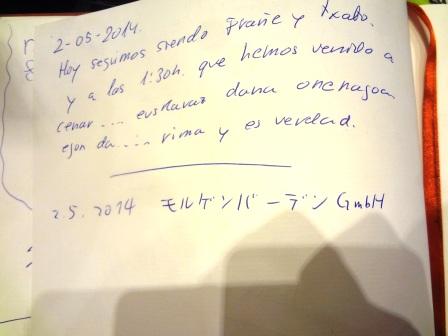 2-05-2014.
Hoy seguimos siendo Frañe y Txabo.
y a las 1:30h. que hemos venido a
cenar... euskaraz dana onenagoa
egon da... rima y es verdad.
2.5.2014 モルゲンバーデン GmbH